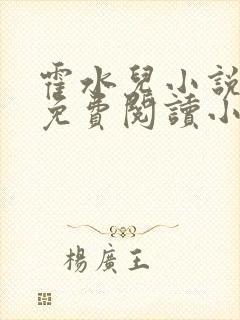 霍水兒小說
免費閱讀小
楊廣王